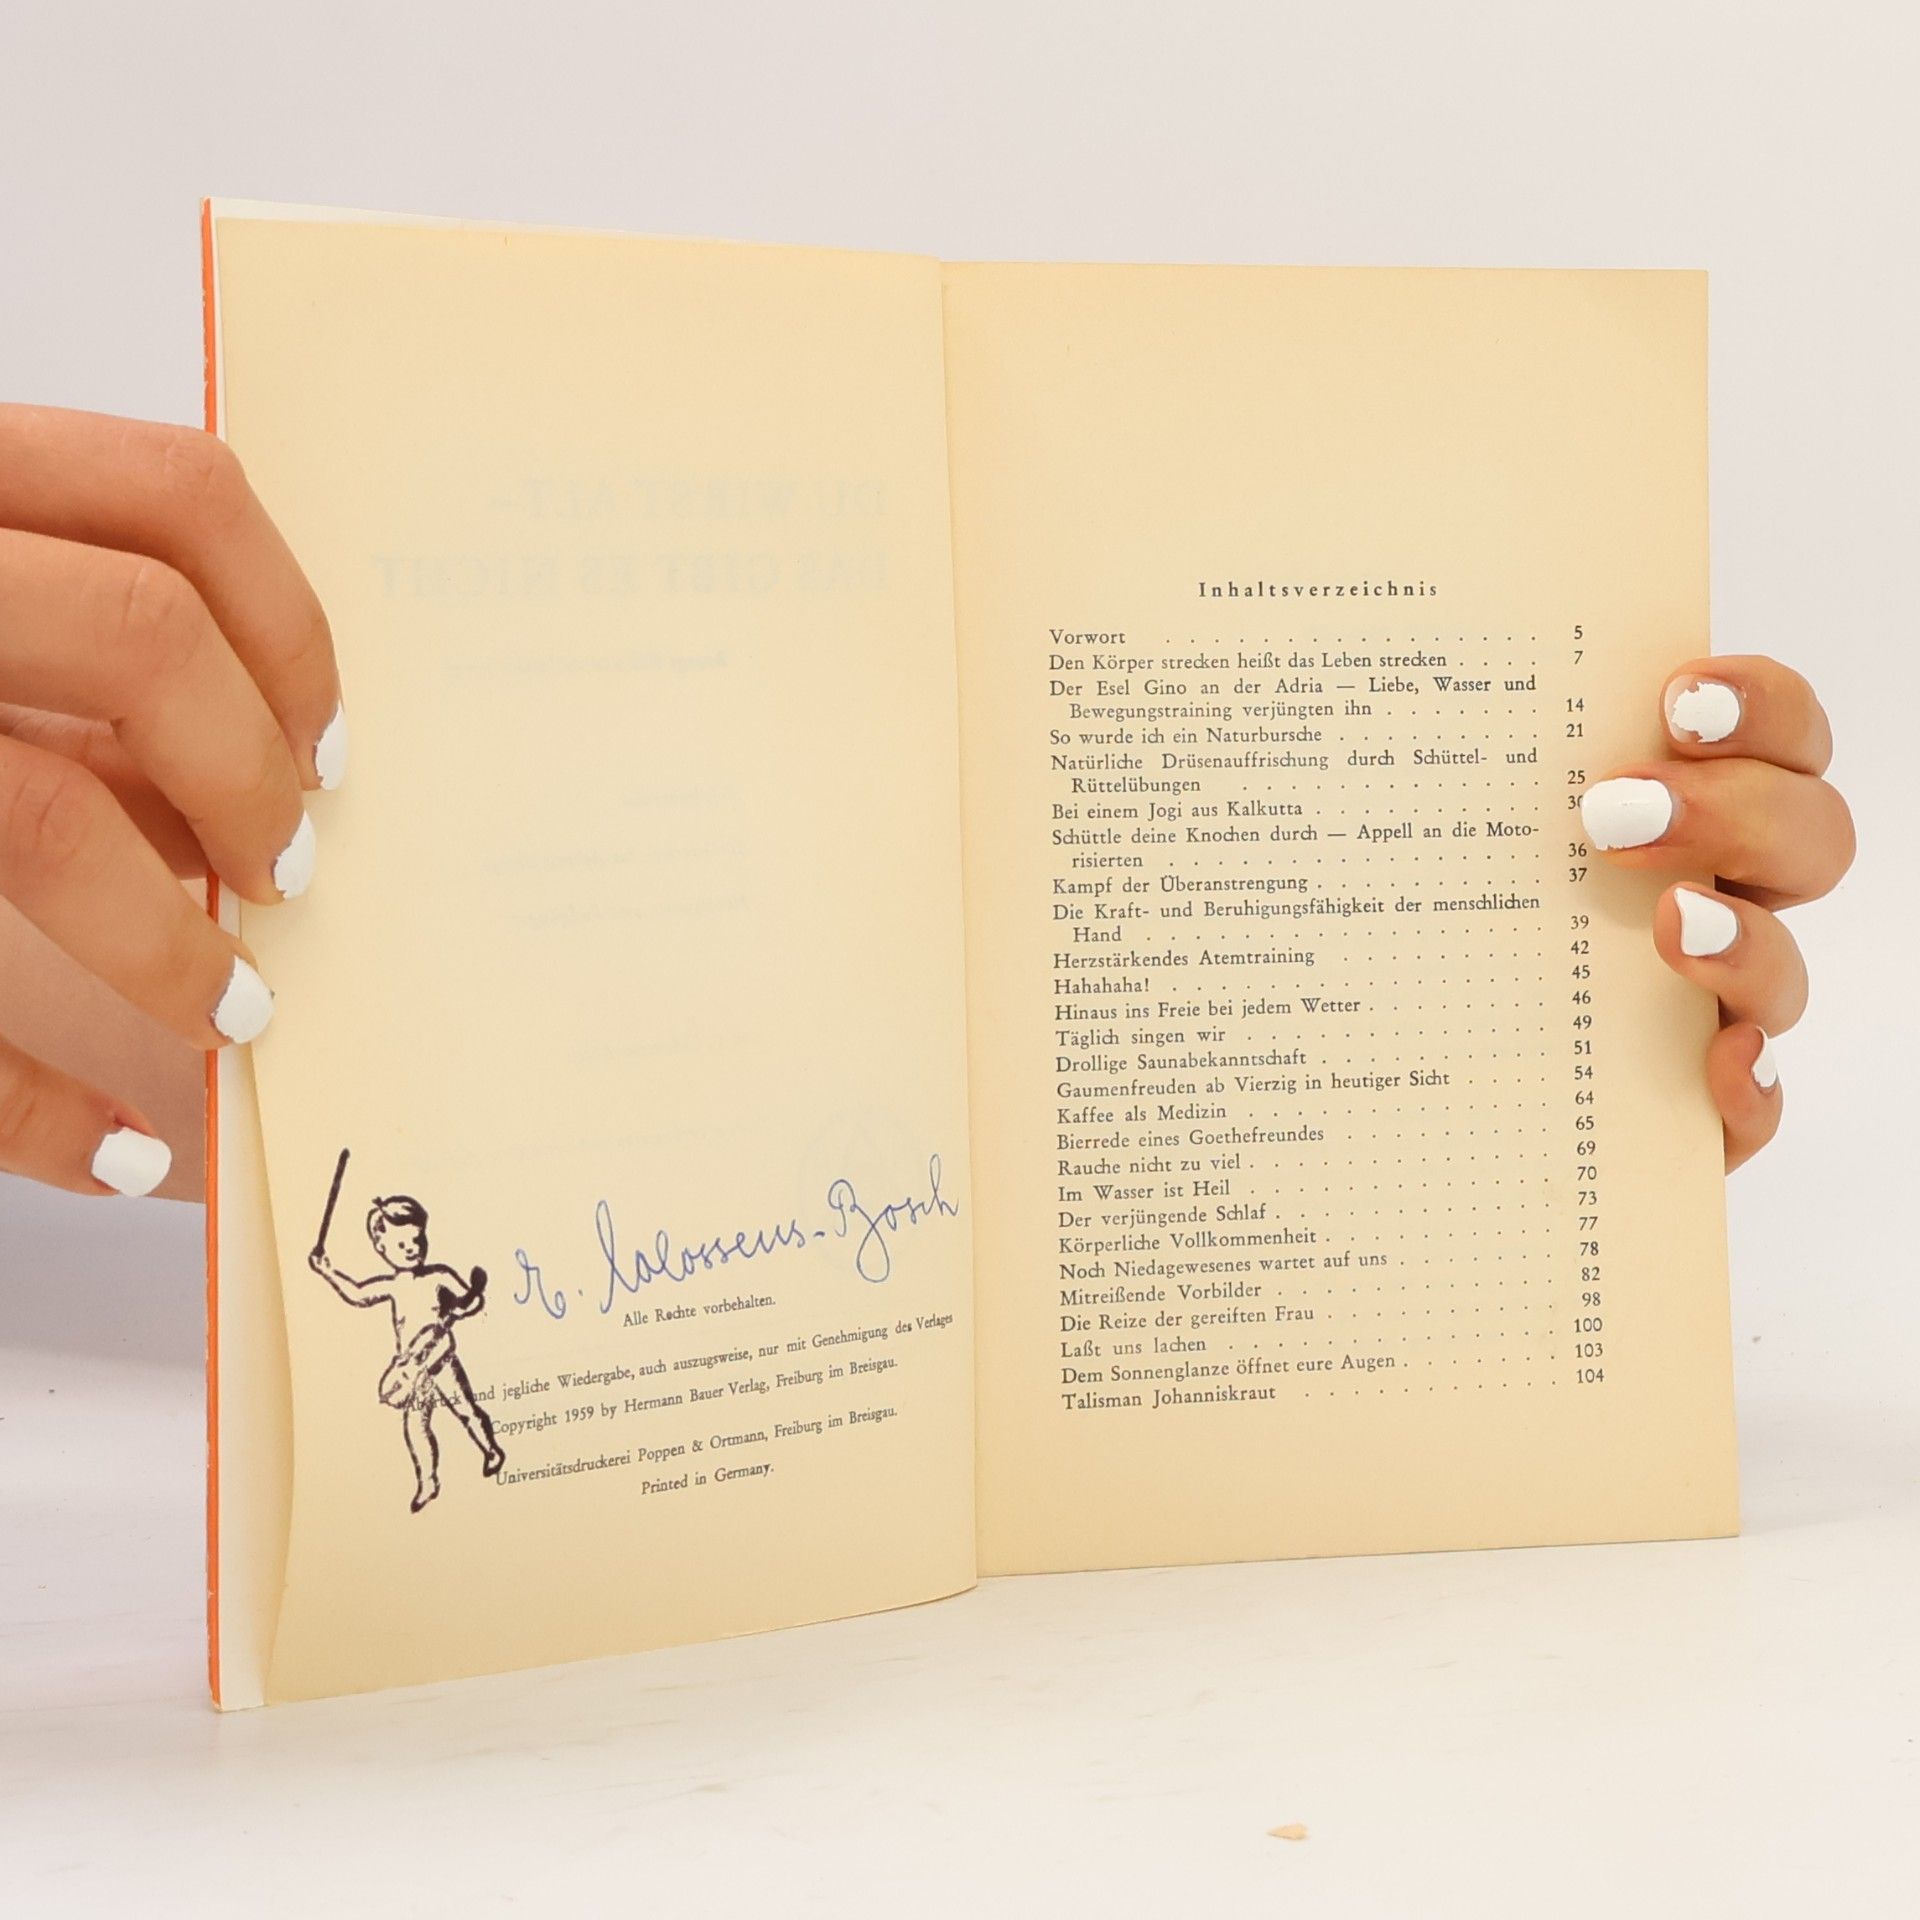 DU WIRST ALT-
DAS GIBT ES NICHT
Alle Rechte vorbehalten.
Abdruck und jegliche Wiedergabe, auch auszugsweise, nur mit Genehmigung des Verlages
Copyright 1959 by Hermann Bauer Verlag, Freiburg im Breisgau.
Universitätsdruckerei Poppen & Ortmann, Freiburg im Breisgau.
Printed in Germany.
Inhaltsverzeichnis
Vorwort . . . . . . . . . . . . . . . . 5
Den Körper strecken heißt das Leben strecken . . . . 7
Der Esel Gino an der Adria — Liebe, Wasser und
Bewegungstraining verjüngten ihn . . . . . . . 14
So wurde ich ein Naturbursche . . . . . . . . . 21
Natürliche Drüsenauffrischung durch Schüttel- und
Rüttelübungen . . . . . . . . . . . . . 25
Bei einem Jogi aus Kalkutta . . . . . . . . . . 30
Schüttle deine Knochen durch — Appell an die Moto-
risierten . . . . . . . . . . . . . . . . 36
Kampf der Überanstrengung . . . . . . . . . . 37
Die Kraft- und Beruhigungsfähigkeit der menschlichen
Hand . . . . . . . . . . . . . . . . . 39
Herzstärkendes Atemtraining . . . . . . . . . 42
Hahahaha! . . . . . . . . . . . . . . . . 45
Hinaus ins Freie bei jedem Wetter . . . . . . . . 46
Täglich singen wir . . . . . . . . . . . . . 49
Drollige Saunabekanntschaft . . . . . . . . . . 51
Gaumenfreuden ab Vierzig in heutiger Sicht . . . . 54
Kaffee als Medizin . . . . . . . . . . . . . 64
Bierrede eines Goethefreundes . . . . . . . . . 65
Rauche nicht zu viel . . . . . . . . . . . . . 69
Im Wasser ist Heil . . . . . . . . . . . . . 70
Der verjüngende Schlaf . . . . . . . . . . . . 73
Körperliche Vollkommenheit . . . . . . . . . . 77
Noch Niedagewesenes wartet auf uns . . . . . . . 78
Mitreißende Vorbilder . . . . . . . . . . . . 82
Die Reize der gereiften Frau . . . . . . . . . . 98
Laßt uns lachen . . . . . . . . . . . . . . 100
Dem Sonnenglanze öffnet eure Augen . . . . . . . 103
Talisman Johanniskraut . . . . . . . . . . . 104